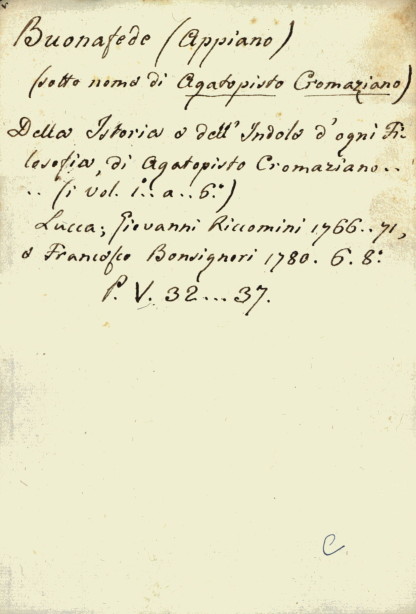 Buonafede (Appiano)
(sotto nome di Agatopisto Cromaziano)
Della Istoria e dell' Indole d'ogni Fi-
losofia, di Agatopisto Cromaziano..
.. (i vol. 1.. a.. 6.°)
Lucca; Giovanni Riccomini 1766..71,
e Francesco Bonsignori 1780. 6. 8.°
P. V. 32...37.
C